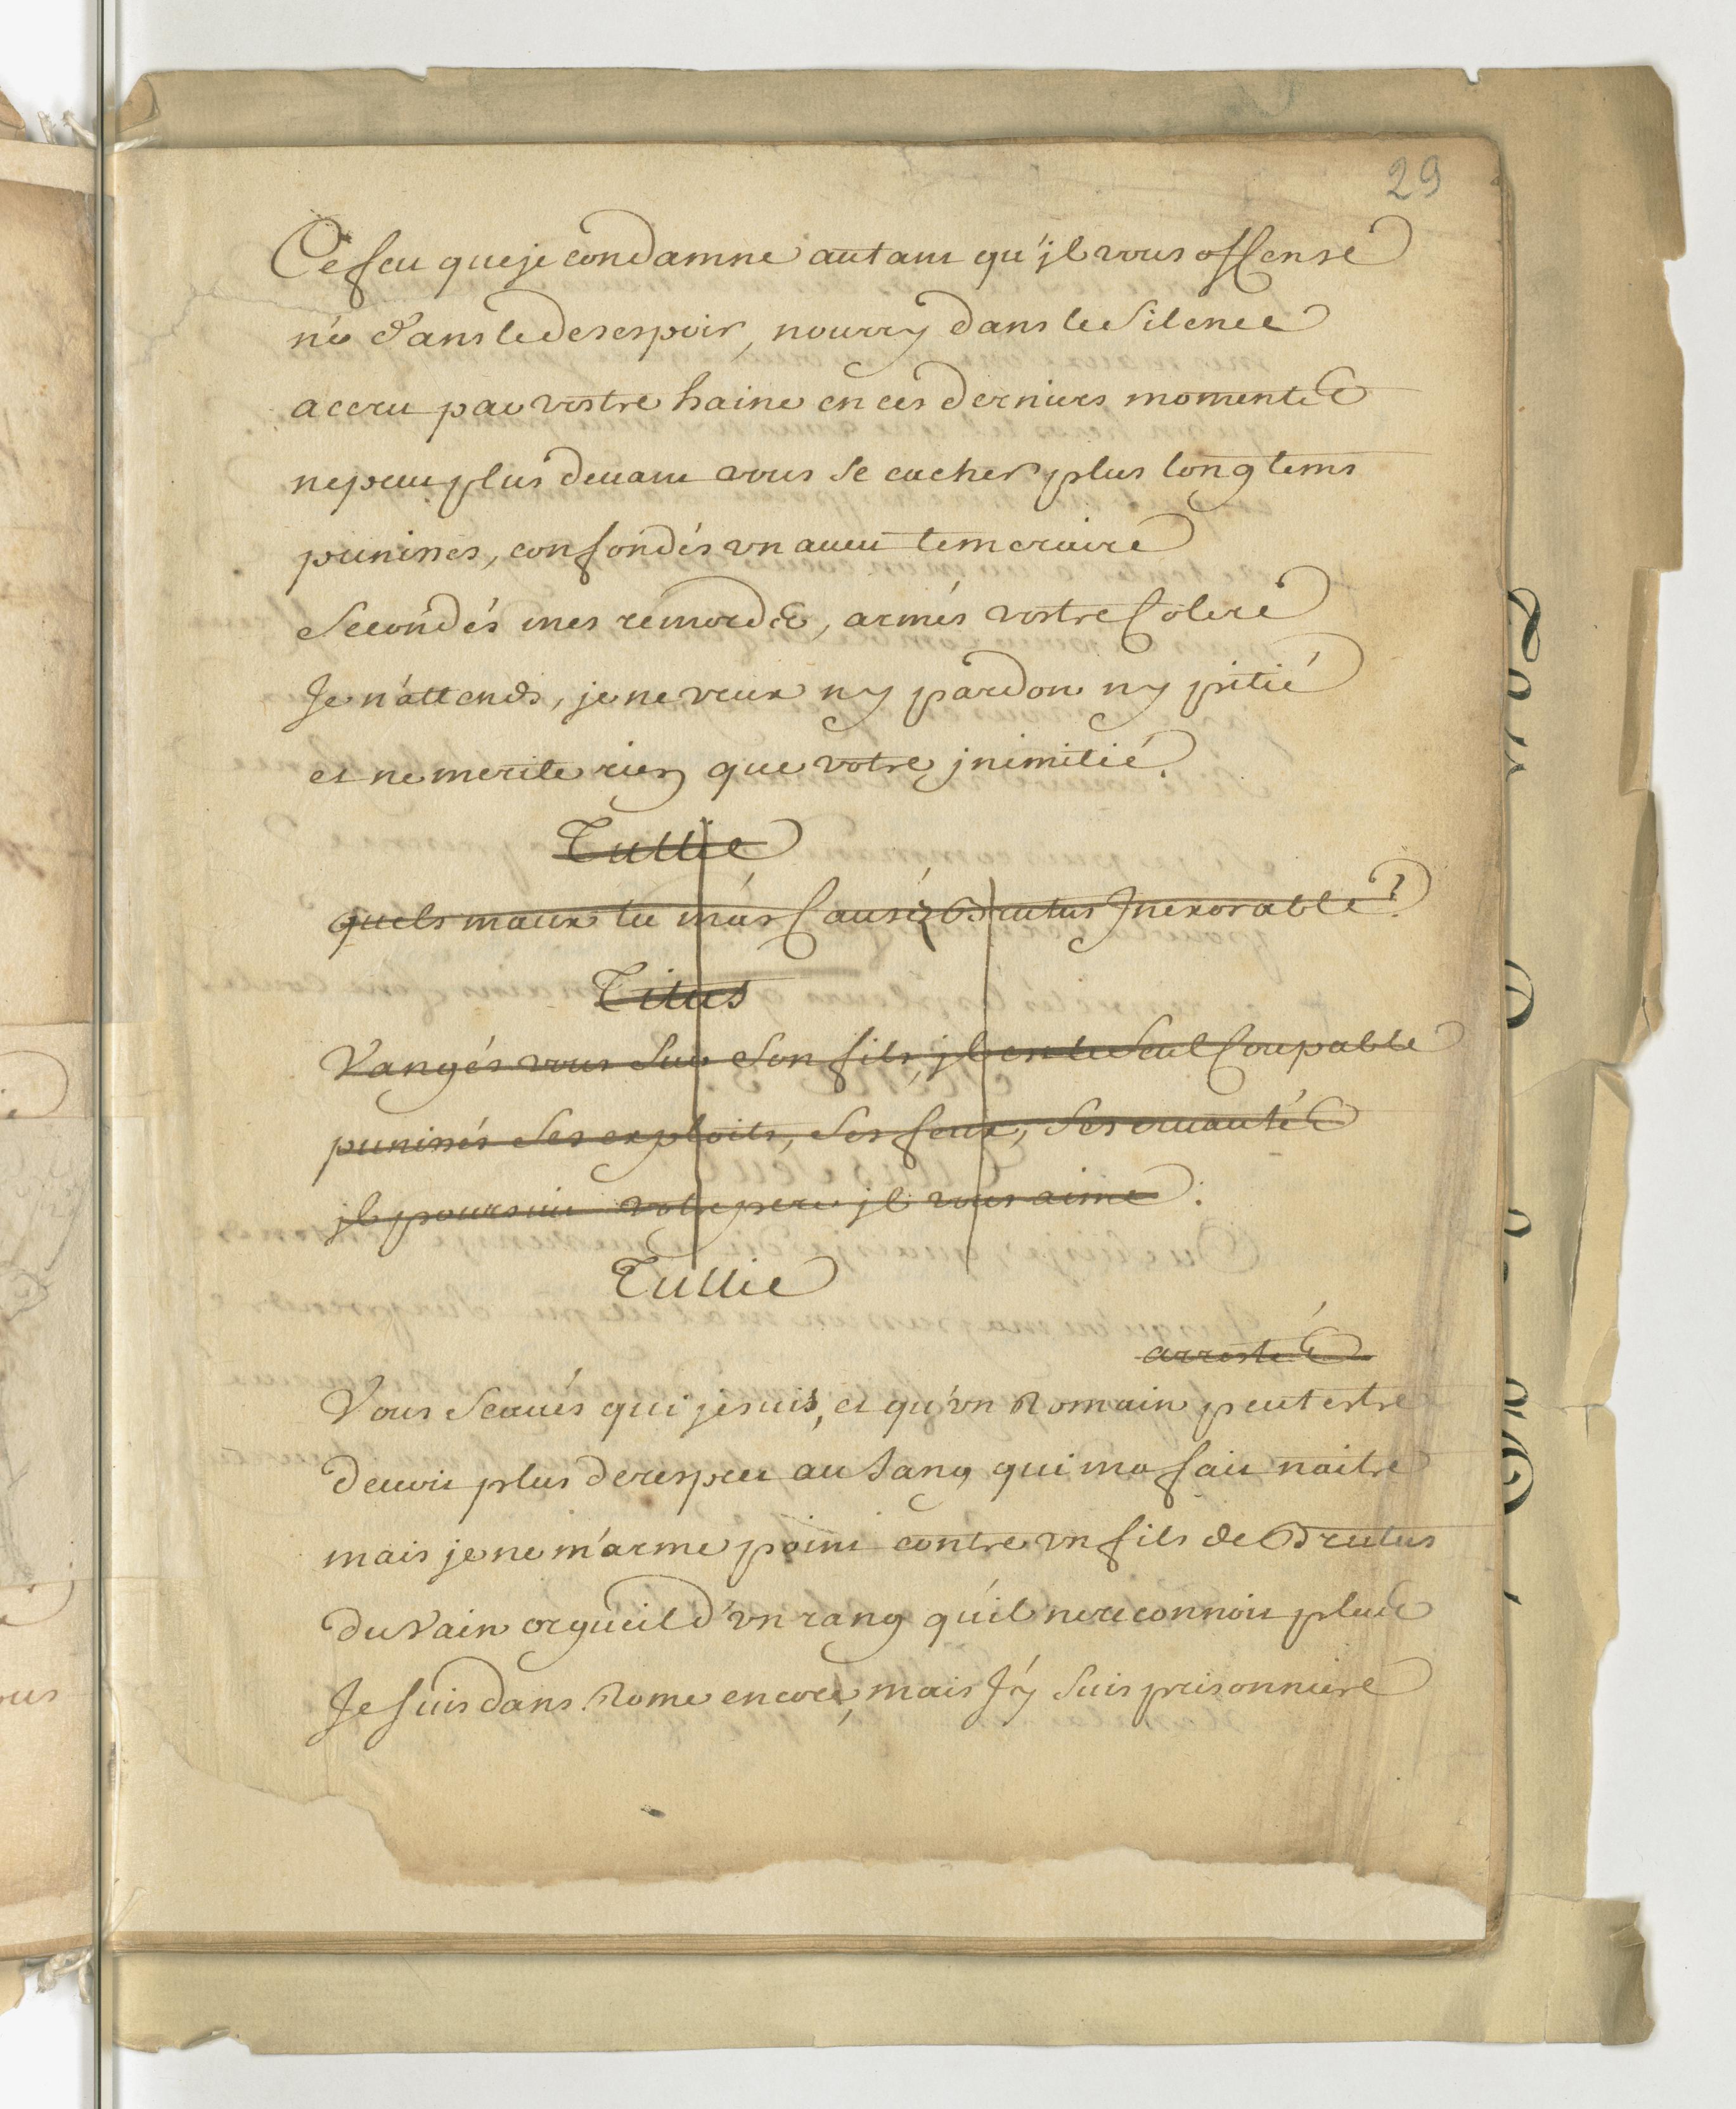 29
Ce feu que je condamne autant qu'jl vous offense
né dans le desespoir, nourry dans le Silence
accru par vostre haine en ces derniers moments
ne peut plus devant vous se cacher plus longtems
punissés, confondés vn aueu temeraire
Secondés mes remords, armés vostre Colere
Je n'attends, je ne veux ny pardon ny pitié
et ne merite rien que votre jnimitié.
Tullie
quels maux tu m'as Causéz Brutus Jnexorable!
Titus
Vangés vous Sur Son fils, jl est le Seul Coupable
punissés Ses exploits, Ses feux, Ses cruautés
jl poursuit votre pere jl vous aime.
Tullie
arrestés
Vous Scaués qui je suis, et qu'vn Romain peut estre
deuoit plus de respect au Sang qui ma fait naitre
mais je ne m'arme point contre vn fils de Brutus
du vain orgueil d'vn rang qu'il ne reconnoit plus
Je suis dans Rome encore, mais J'y Suis prisonniere